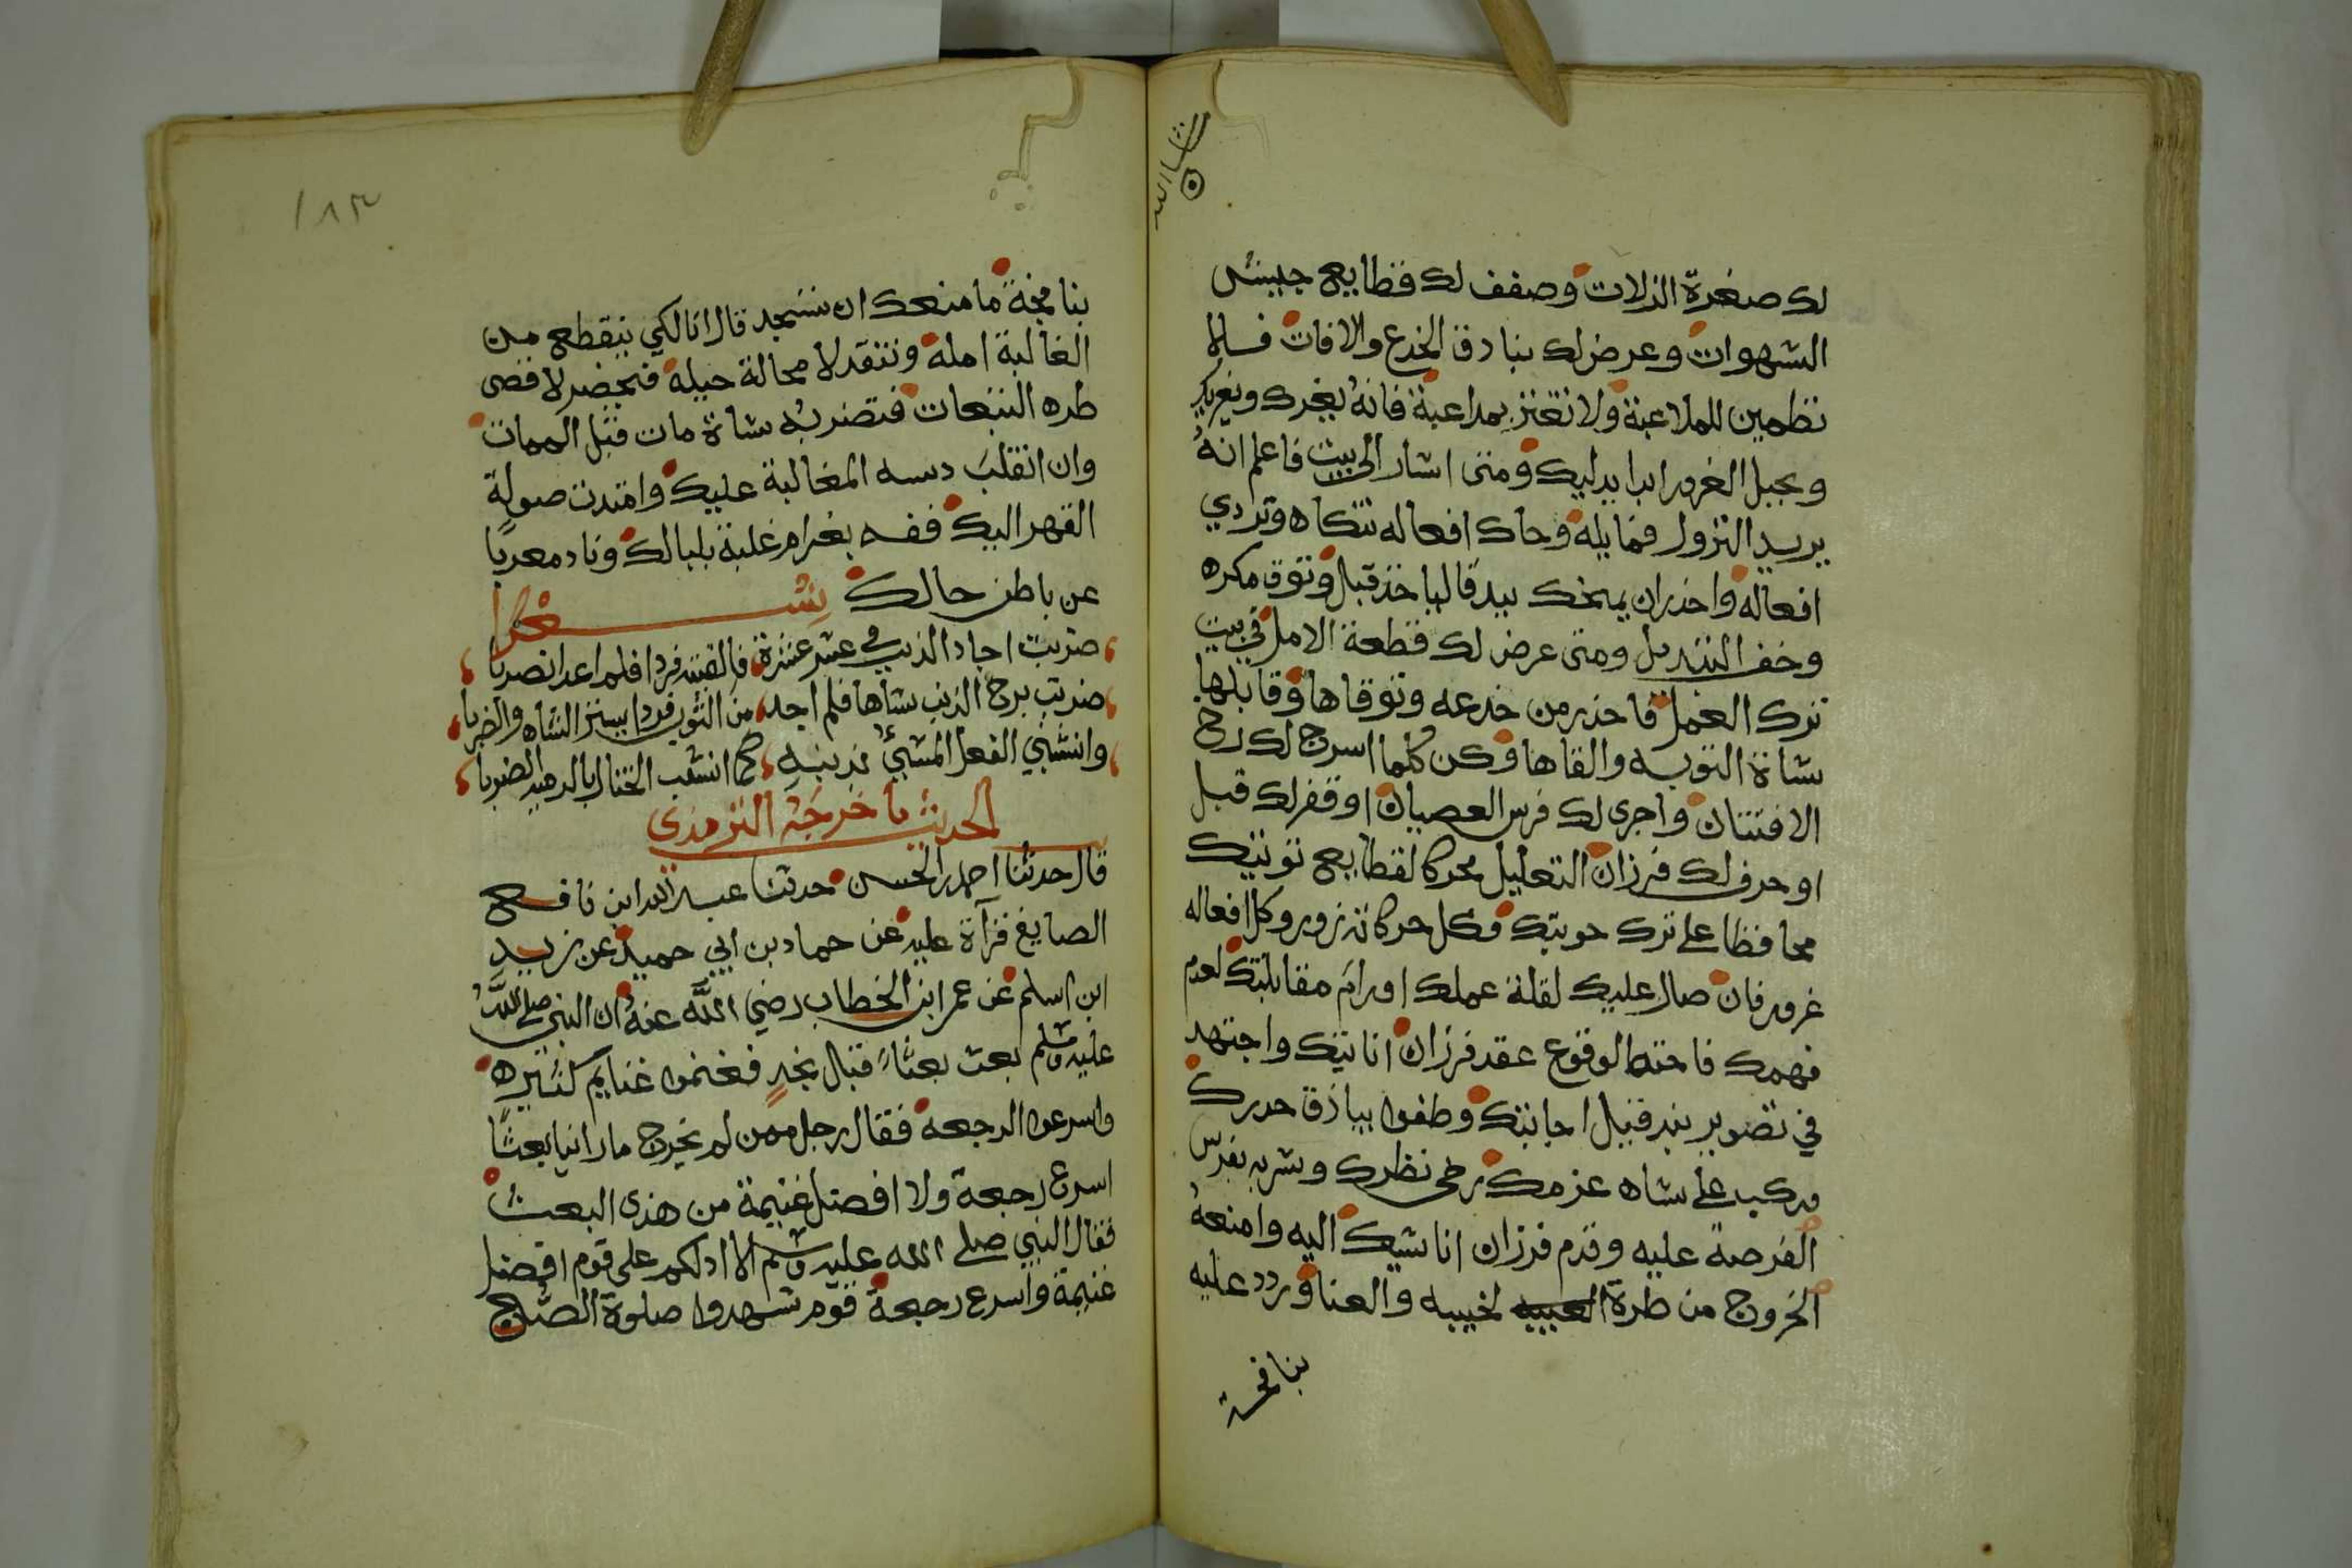 لك صغرة الزلات وصفف لك قطايع جيش
الشهوات وعرض لك بنادق الخدع والافات فلا
تطمين للملاعبة ولا تغتر بمداعبة فانه يغرك ويغريك
وبحبل الغرور ابدا يدليك ومتى اشار الى بيت فاعلم انه
يريد النزول فقابله وحاك افعاله تتكاه وتردي
افعاله واحذر ان يمنحك بيدقا ليا خذ قبال وتوق مكره
وخف التبديل ومتى عرض لك قطعة الامل في بيت
ترك العمل فاحذر من خدعه وتوقاها وقابلها
بشاة التوبه والقاها وكن كلما اسرج لك رخ
الافتتان واجرى لك فرس العصيان اوقفر لك قبل
او حرف لك فرزان التعليل محركا لقطايع توبتك
محافظا على ترك حوبتك فكل حركاته زور وكل افعاله
غرور فان صال عليك لقلة عملك او رام مقابلتك لعدم
فهمك فاحتط لوقوع عقد فرزان انابتك واجتهد
في تصوير بند قبل اجابتك وطفوا بياذق حدرك
وركب على شاه عزمك رخى نظرك وشربه بفرس
الفرصة عليه وقدم فرزان انا شيك اليه وامنعه
الخروج من طرة لخيبه والعنا وردد عليه
بنا فحة
١٨٣
بنا فحة ما منعك ان تسجد قال انا لكي ينقطع من
الغالبة امله وتنقد لا محالة حيله فيحضر لاقصى
طره التبعات فتضربه شاة مات قبل الممات
وان انقلب دسه المغالبة عليك وامتدت صولة
القهر اليك ففه بغرام غلبة بلبالك وناد معربا
عن باطن حالك شعرا
ضربت اجاد الذيب في عشر عشرة فالقيته فردا فلم اعد انصربا
ضربت برج الذيب بشاها فلم اجد من الثوب فردا يستر الشاه والضربا
وانشبني الفعل المشبئ بذنبه كما انشب الختار بالرهيد الضربا
الحديث ما خرجه الترمذي
قال حدثنا احمد بن الحسن حدثنا عبد الله ابن نافع
الصايغ قرآة عليه عن حماد بن ابي حميد عن زيد
ابن اسلم عن عمر ابن الخطاب رضي الله عنه ان النبي صلى الله
عليه وسلم بعث بعثا قبال نجد فغنموا غنايم كثيره
واسرعوا الرجعه فقال رجل ممن لم يخرج ما راينا بعثا
اسرع رجعة ولا افضل غنيمة من هذى البعث
فقال النبي صلى الله عليه وسلم الا ادلكم على قوم افضل
غنيمة واسرع رجعة قوم شهدوا صلوة الصبح